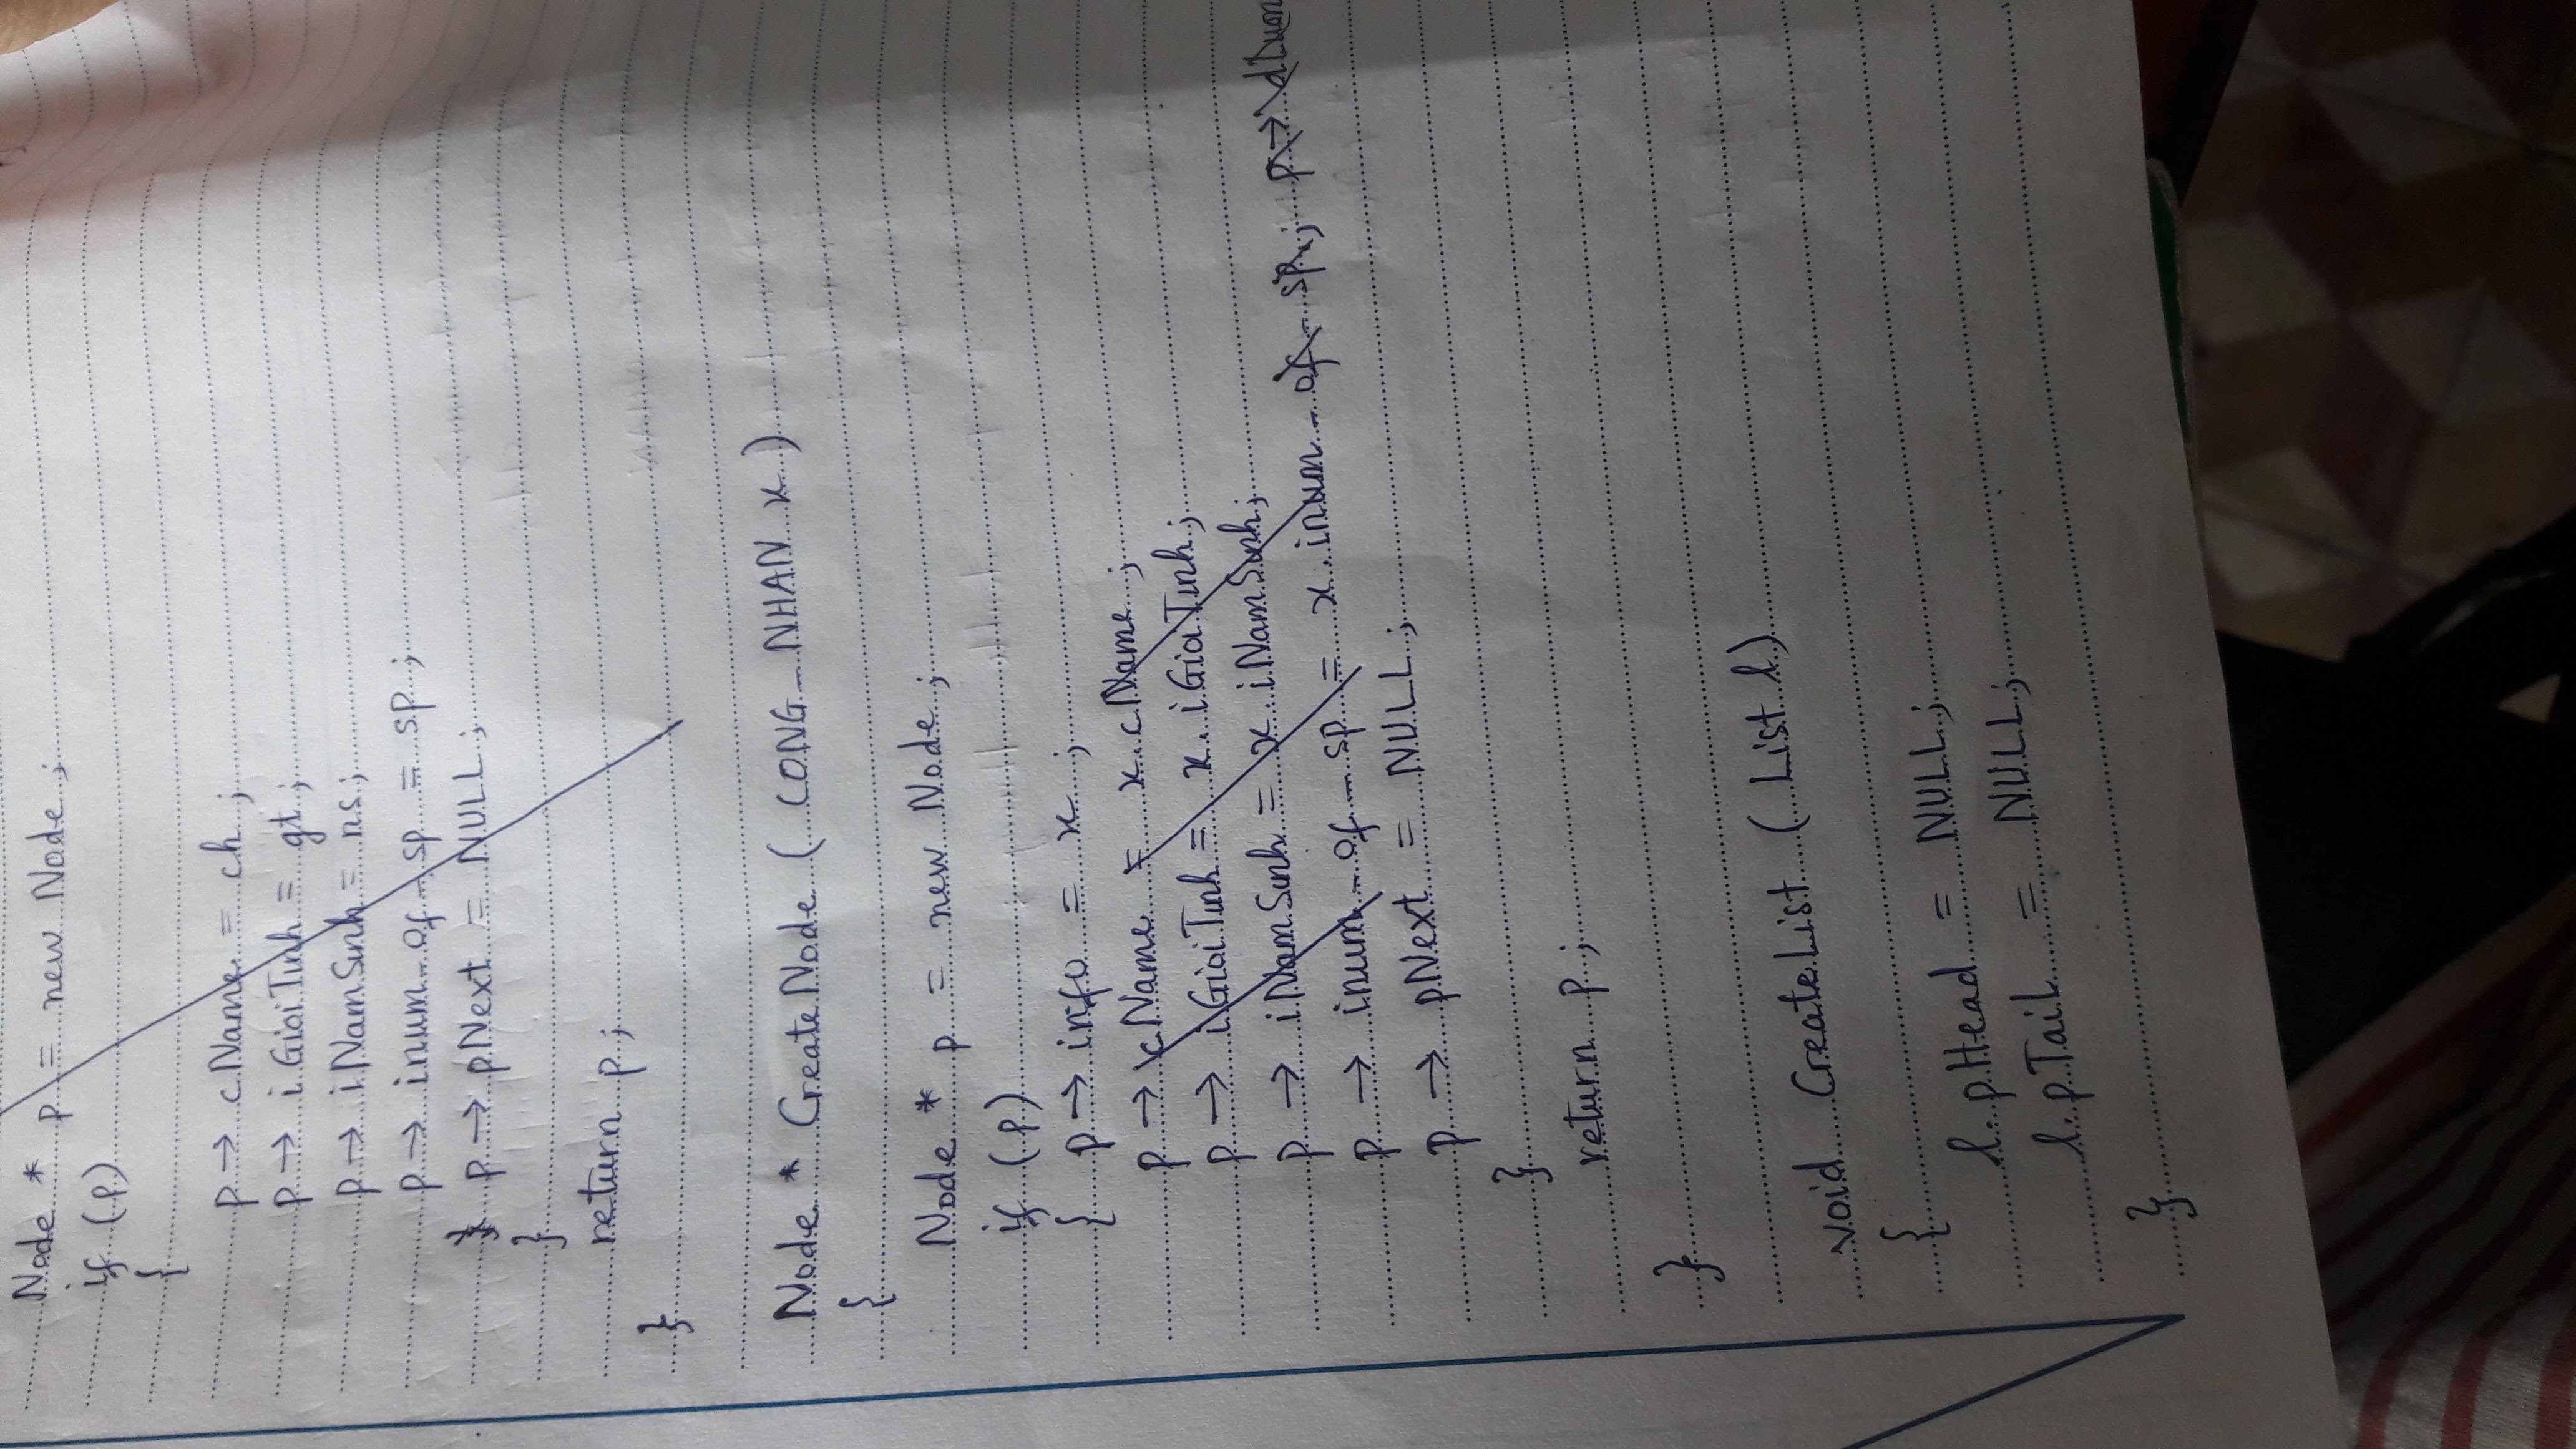 Node * p = new Node;
if (p)
{
p → cName = ch;
p → iGioiTinh = gt;
p → iNamSinh = ns;
p → inum_of_sp = sp;
} p → pNext = NULL;
}
return p;
}
Node * CreateNode (CONG_NHAN x)
{
Node * p = new Node;
if (p)
{ p → info = x;
p → cName = x.cName;
p → iGioiTinh = x.iGioiTinh;
p → iNamSinh = x.iNamSinh;
p → inum_of_sp = x.inum_of_sp; p →
p → pNext = NULL;
}
return p;
}
void CreateList (List l)
{
l.pHead = NULL;
l.pTail = NULL;
}